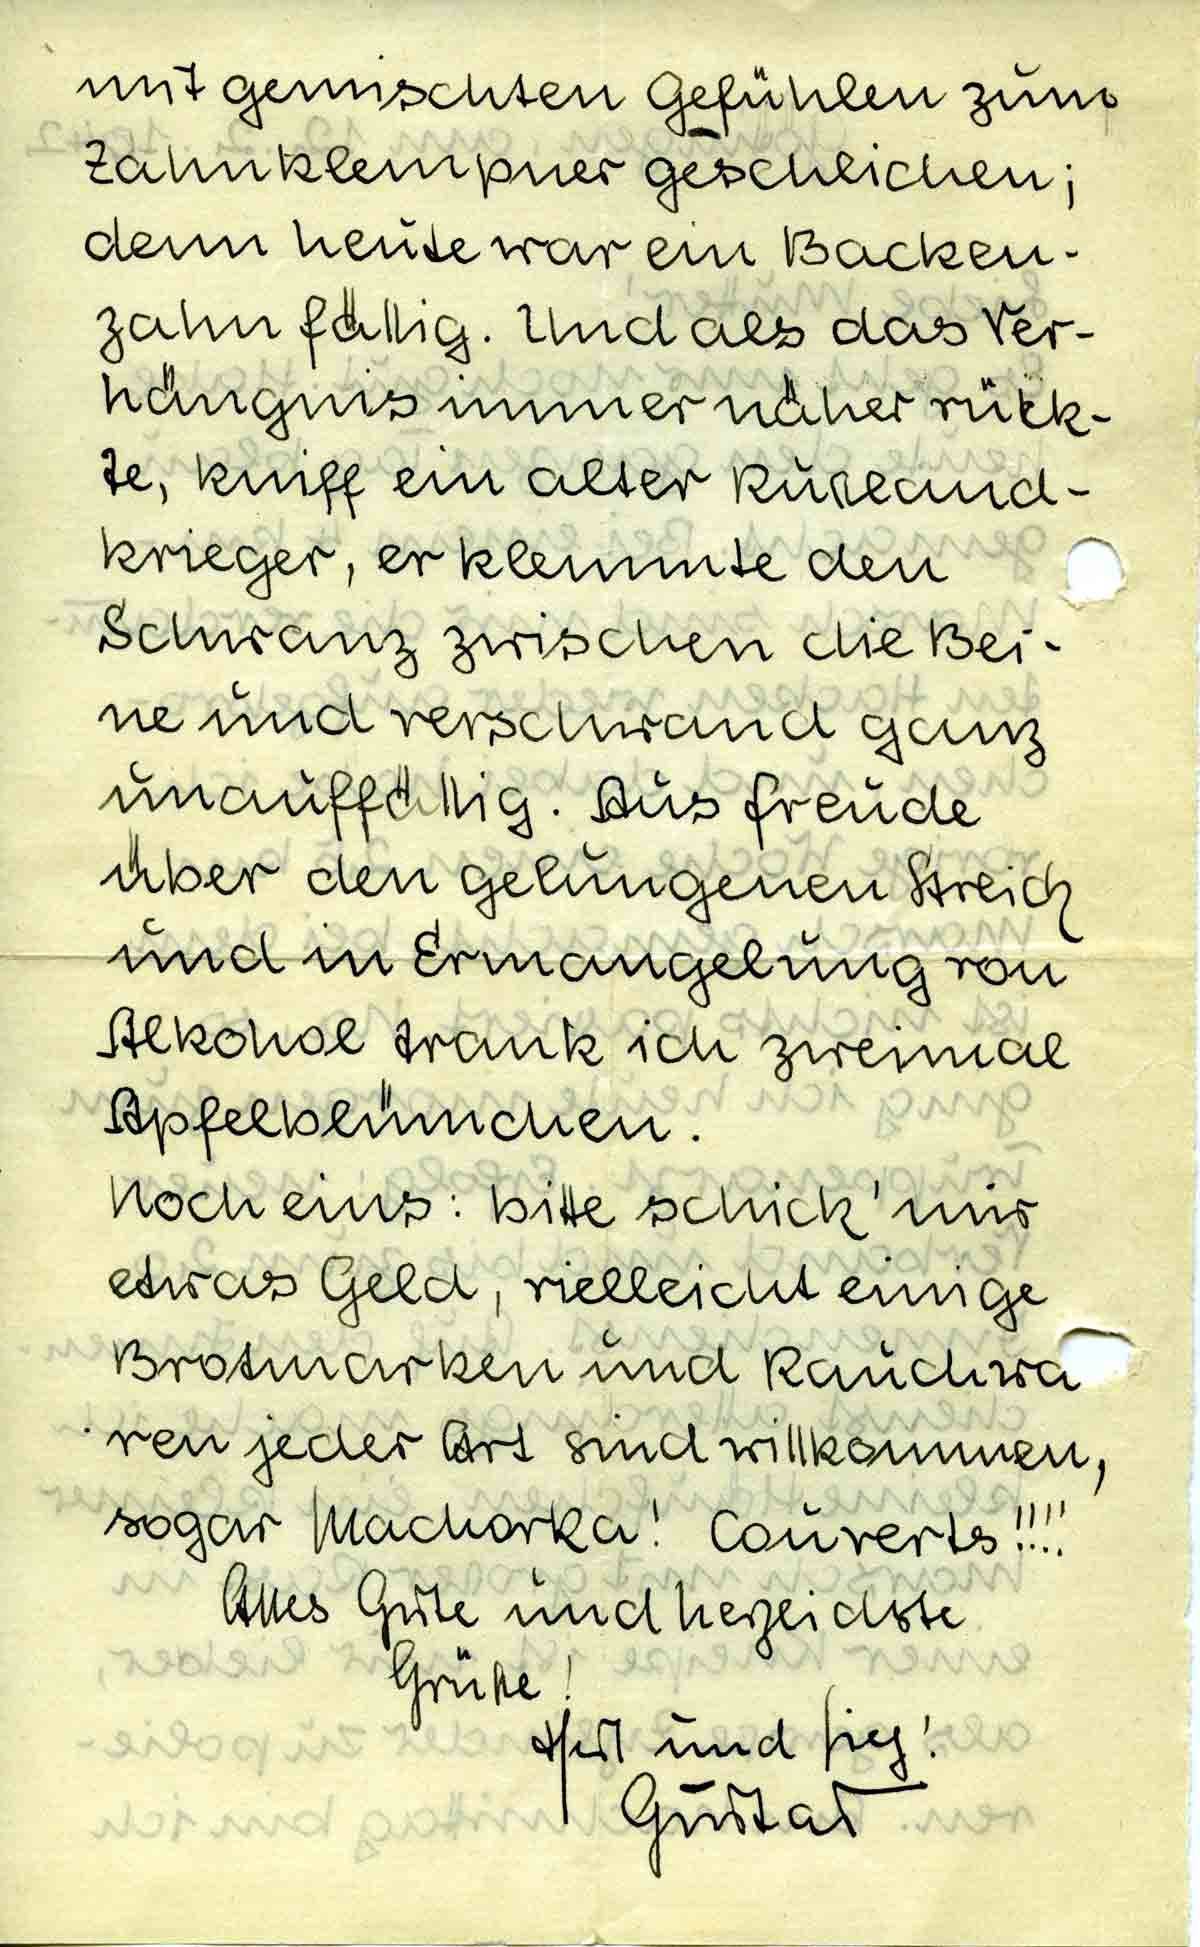 mit gemischten Gefühlen zum
Zahnklempner geschlichen;
denn heute war ein Backen-
zahn fällig. Und als das Ver-
hängnis immer näher rück-
te, kniff ein alter Rußland-
krieger, er klemmte den
Schwanz zwischen die Bei-
ne und verschwand ganz
unauffällig. Aus Freude
über den gelungenen Streich
und in Ermangelung von
Alkohol trank ich zweimal
Apfelblümchen.
Noch eins: bitte schick' mir
etwas Geld, vielleicht einige
Brotmarken und Rauchwa
ren jeder Art sind willkommen,
sogar Machorka! Couverts!!!!
Alles Gute und herzlichste
Grüße!
Heil und Sieg!
Gustav